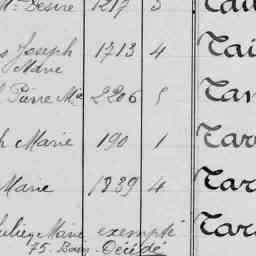 Mie Désiré 1217 3
s Joseph 1713 4 Tai
Marie
l Pierre Mie 2206 5 Tan
h Marie 190 1 Tar
Marie 1839 4 Tar
Julien Marie exempté Tar
75. Décédé